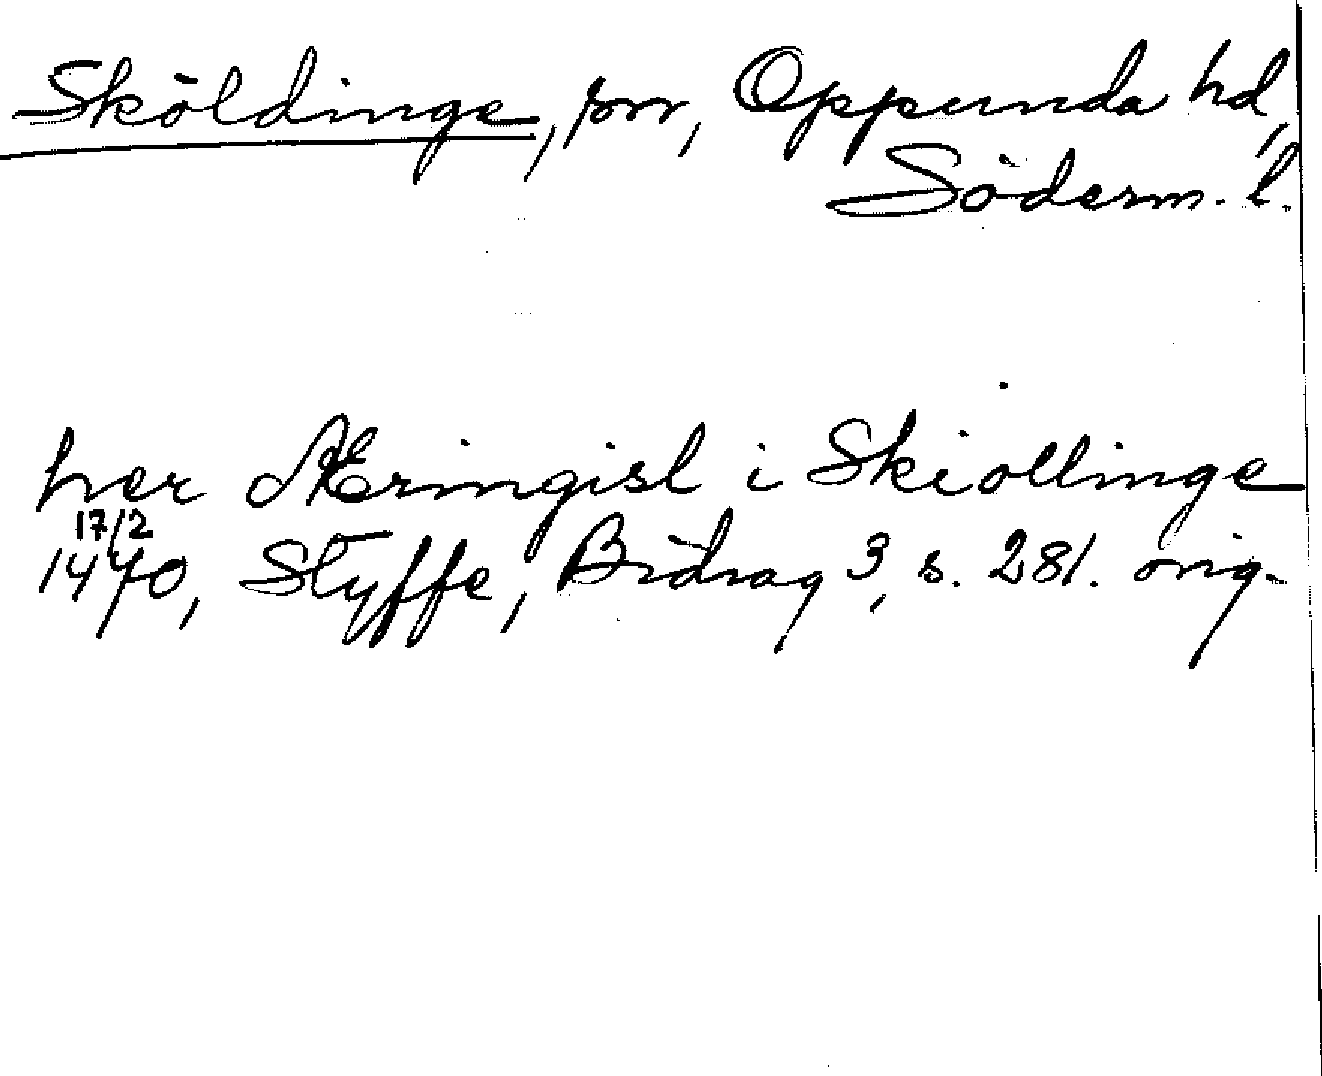 Sköldinge, sn, Oppunda hd,
Söderm. l.
her Æringisl i Skiollinge
17/2
1470, Styffe, Bidrag 3, s. 281. orig.